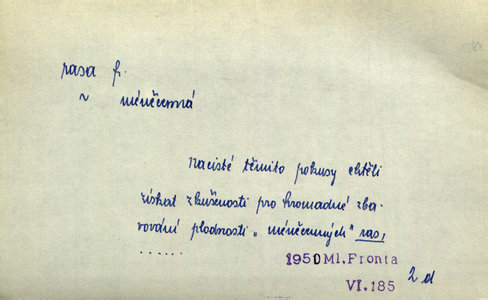 rasa f.
~ méněcenná
nacisté těmito pokusy chtěli
získat zkušenosti pro hromadné zba-
vování plodnosti „méněcenných" ras,
......
1950 Ml. Fronta
VI.185
2 d